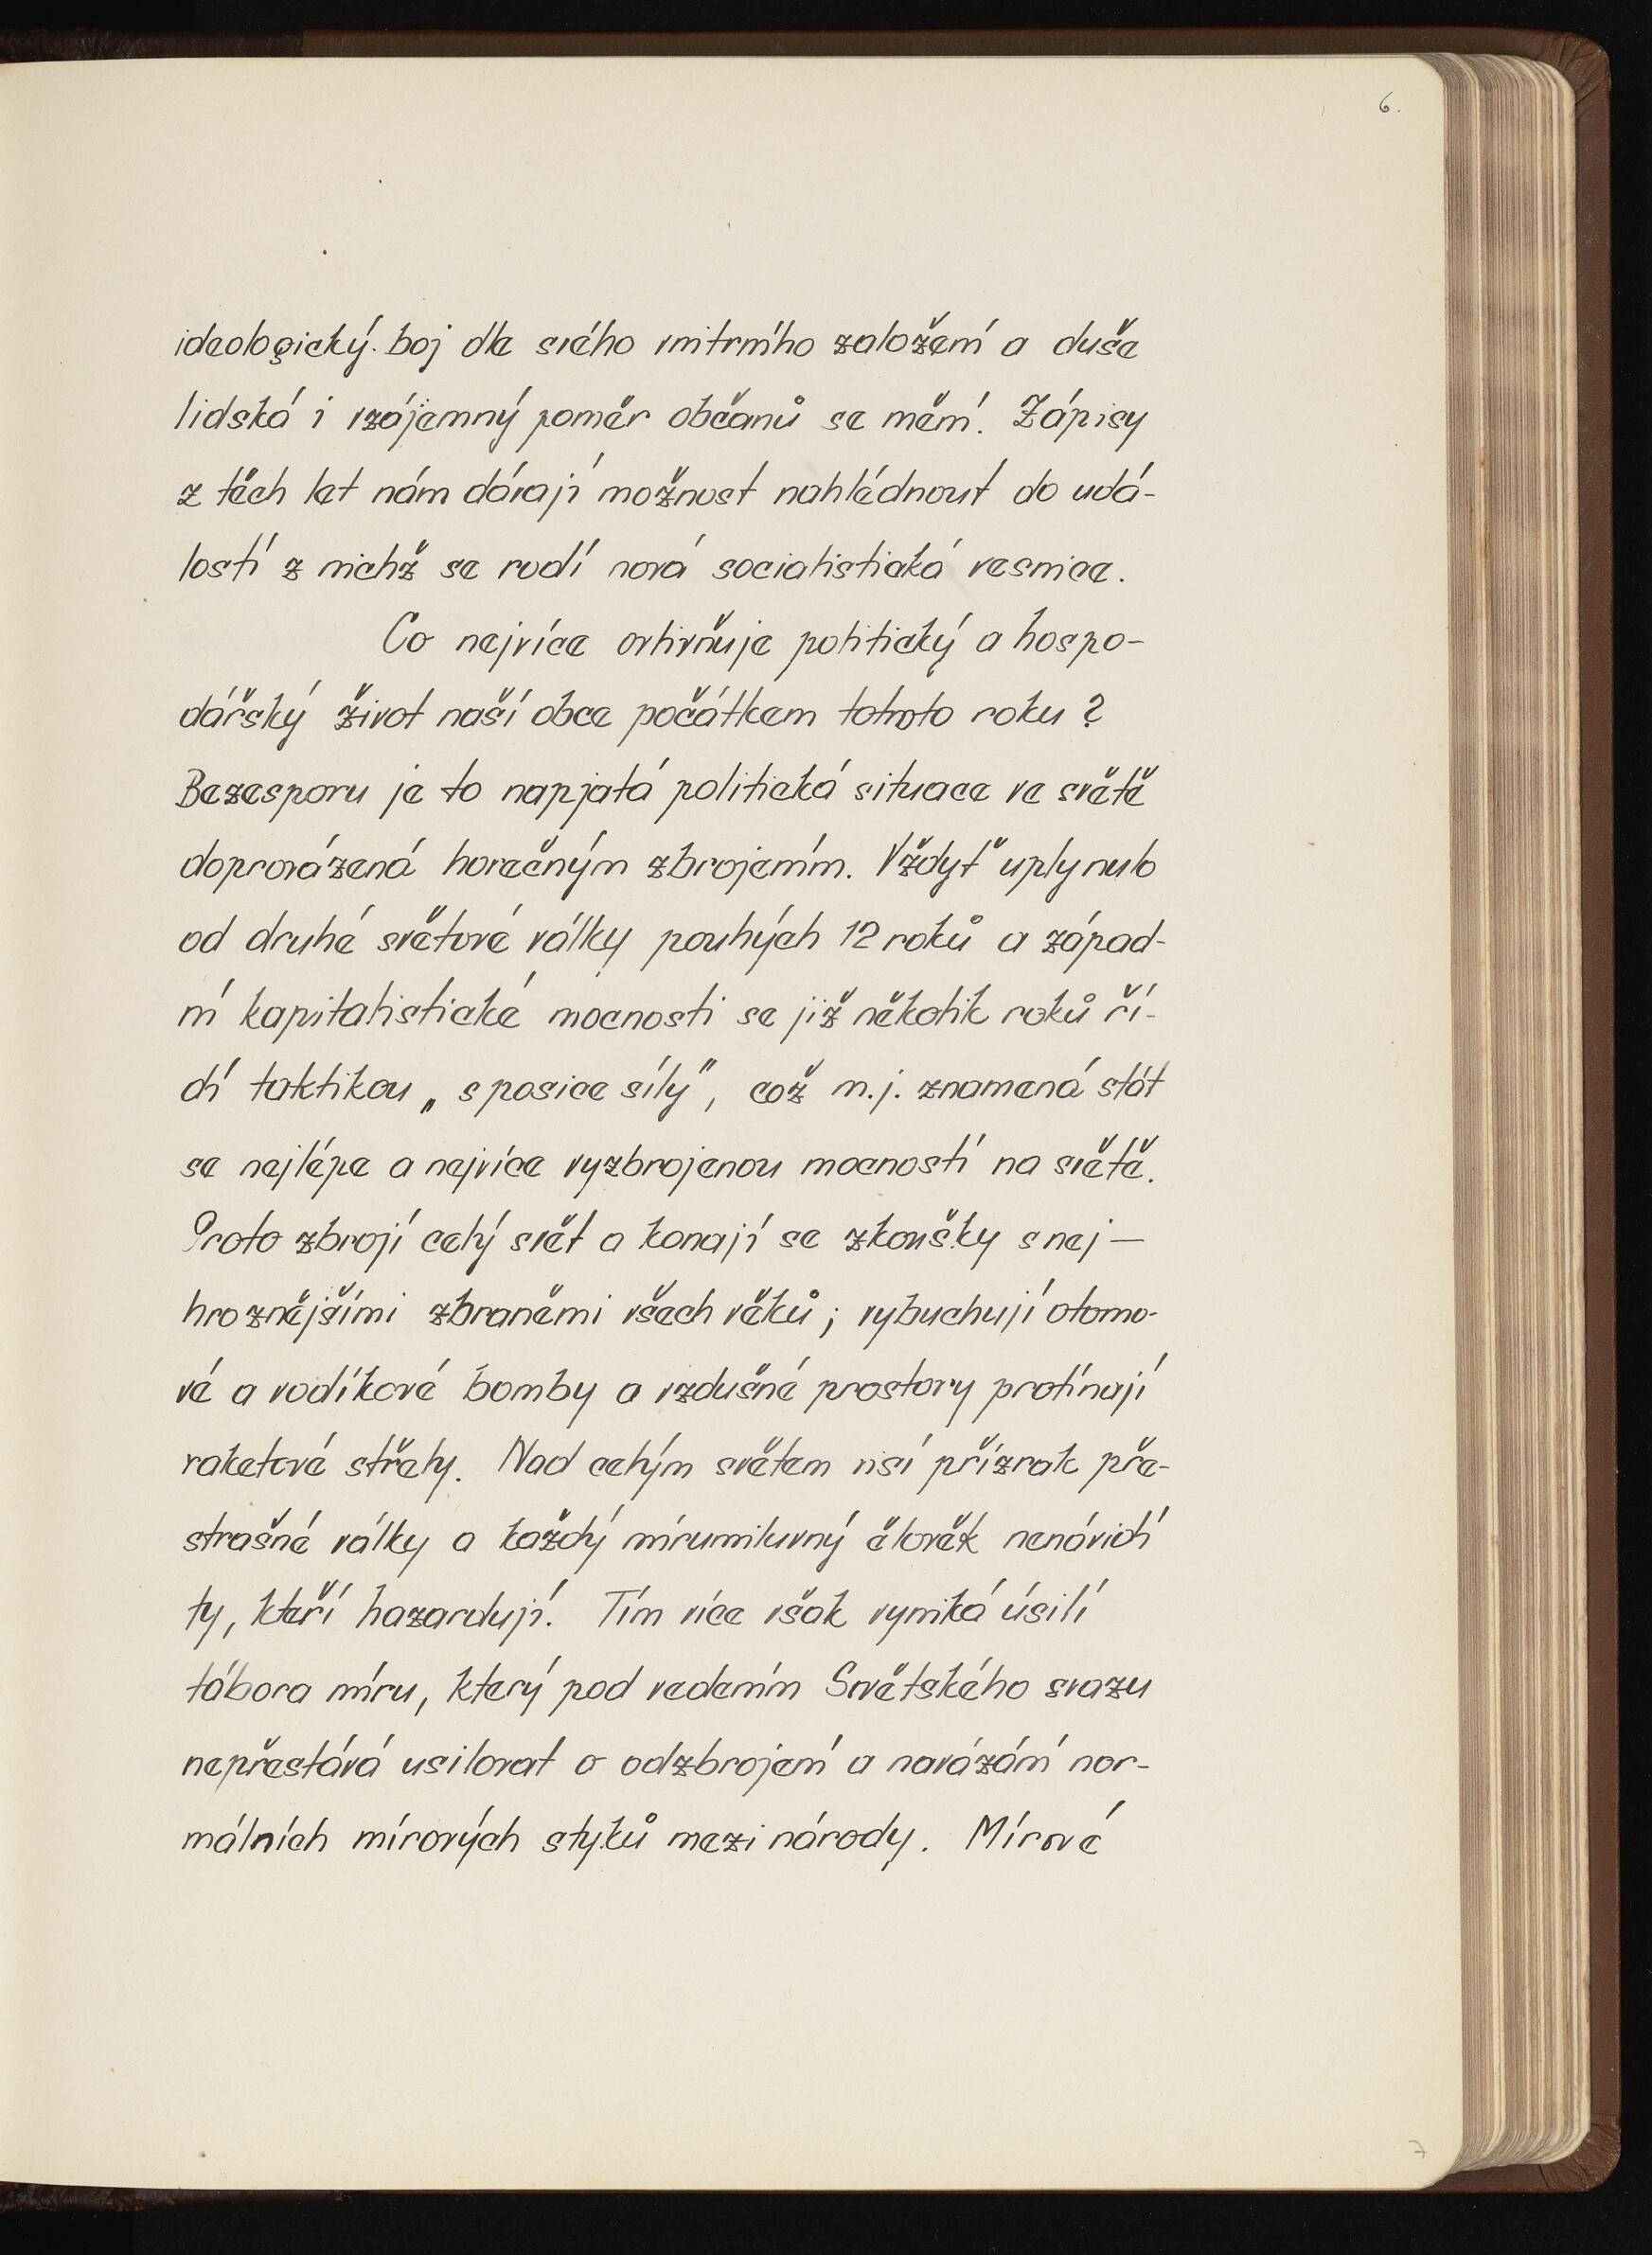 6.
ideologický boj dle svého vnitrního založení a duše
lidská i vzájemný poměr občanů se mění. Zápisy
z těch let nám dávají možnost nahlédnout do udá-
lostí z nichž se rodí nová socialistická vesnice.
Co nejvíce ovlivňuje politický a hospo-
dářský život naší obce počátkem tohoto roku?
Bezesporu je to napjatá politická situace ve světě
doprovázená horečným zbrojením. Vždyť uplynulo
od druhé světové války pouhých 12 roků a západ-
ní kapitalistické mocnosti se již několik roků ří-
dí taktikou „s posice síly", což m.j. znamená stát
se nejlépe a nejvíce vyzbrojenou mocností na světě.
Proto zbrojí celý svět a konají se zkoušky s nej-
hroznějšími zbraněmi všech věků; vybuchují atomo-
vé a vodíkové bomby a vzdušné prostory protínají
raketové střely. Nad celým světem visí přízrak pře-
strašné války a každý mírumiluvný člověk nenávidí
ty, kteří hazardují. Tím více však vyniká úsilí
tábora míru, který pod vedením Sovětského svazu
nepřestává usilovat o odzbrojení a navázání nor-
málních mírových styků mezi národy. Mírové
7